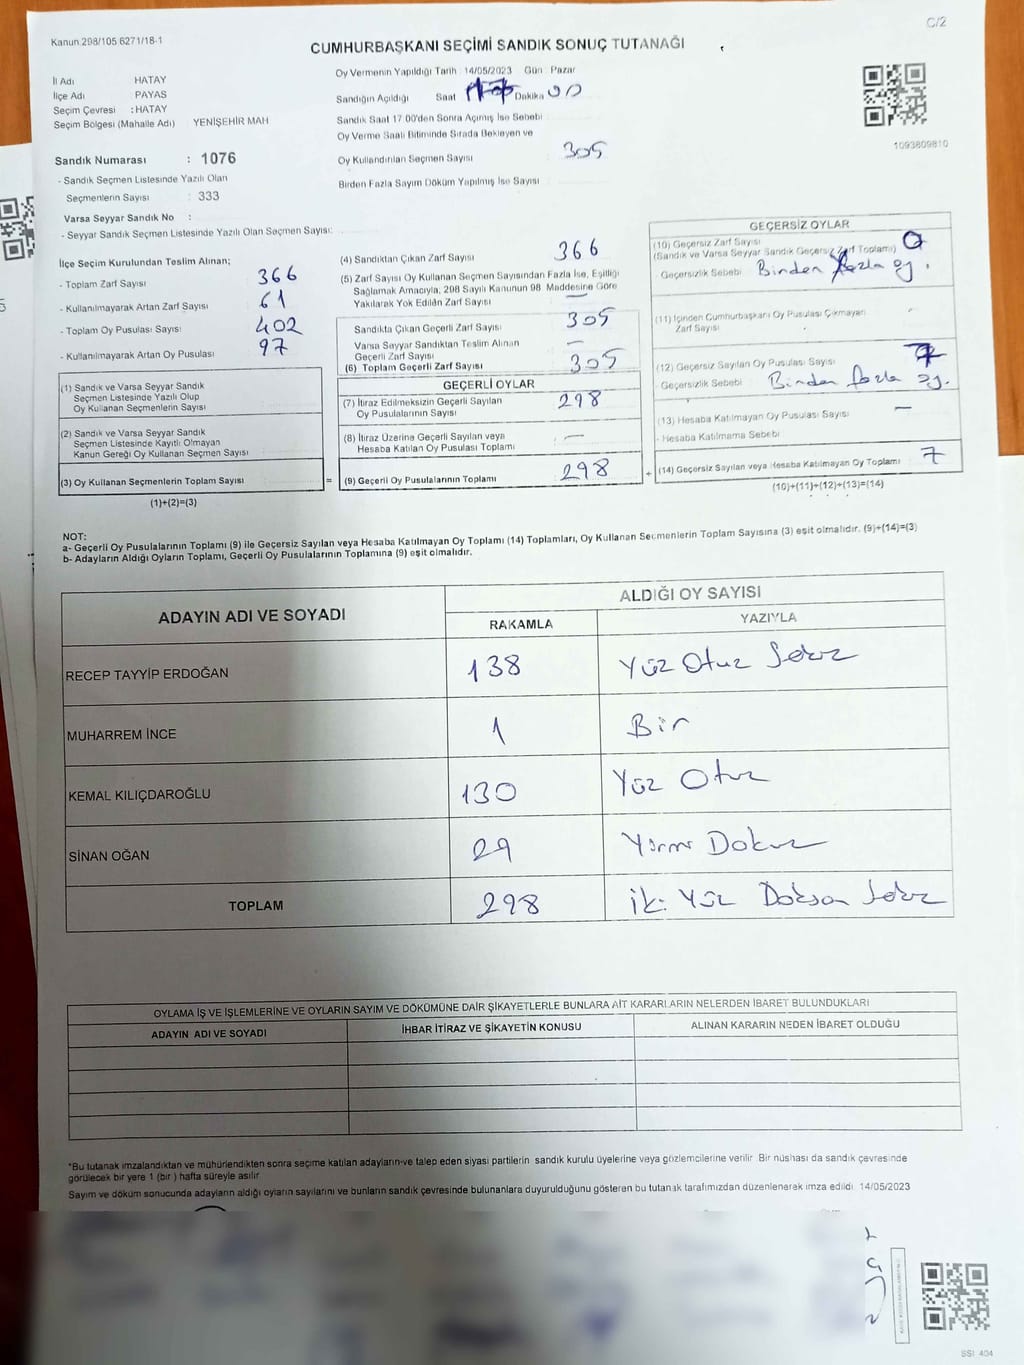 C/2
Kanun 298/105 6271/18-1
CUMHURBAŞKANI SEÇİMİ SANDIK SONUÇ TUTANAĞI
İl Adı HATAY
İlçe Adı PAYAS
Seçim Çevresi : HATAY
Seçim Bölgesi (Mahalle Adı) YENİŞEHİR MAH
Sandık Numarası : 1076
- Sandık Seçmen Listesinde Yazılı Olan
Seçmenlerin Sayısı : 333
Varsa Seyyar Sandık No :
- Seyyar Sandık Seçmen Listesinde Yazılı Olan Seçmen Sayısı:
Oy Vermenin Yapıldığı Tarih 14/05/2023 Gün Pazar
Sandığın Açıldığı Saat Dakika 00
Sandık Saat 17 00'den Sonra Açımış İse Sebebi
Oy Verme Saati Bitiminde Sırada Bekleyen ve
Oy Kullandırılan Seçmen Sayısı 305
Birden Fazla Sayım Döküm Yapılmış İse Sayısı
1093809810
İlçe Seçim Kurulundan Teslim Alınan;
- Toplam Zarf Sayısı 366
- Kullanılmayarak Artan Zarf Sayısı 61
- Toplam Oy Pusulası Sayısı 402
- Kullanılmayarak Artan Oy Pusulası 97
(1) Sandık ve Varsa Seyyar Sandık
Seçmen Listesinde Yazılı Olup
Oy Kullanan Seçmenlerin Sayısı
(2) Sandık ve Varsa Seyyar Sandık
Seçmen Listesinde Kayıtlı Olmayan
Kanun Gereği Oy Kullanan Seçmen Sayısı
(3) Oy Kullanan Seçmenlerin Toplam Sayısı =
(1)+(2)=(3)
(4) Sandıktan Çıkan Zarf Sayısı 366
(5) Zarf Sayısı Oy Kullanan Seçmen Sayısından Fazla İse, Eşitliği
Sağlamak Amacıyla, 298 Sayılı Kanunun 98. Maddesine Göre
Yakılarak Yok Edilen Zarf Sayısı —
Sandıkta Çıkan Geçerli Zarf Sayısı 305
Varsa Seyyar Sandıktan Teslim Alınan
Geçerli Zarf Sayısı —
(6) Toplam Geçerli Zarf Sayısı 305
GEÇERLİ OYLAR
(7) İtiraz Edilmeksizin Geçerli Sayılan
Oy Pusulalarının Sayısı 298
(8) İtiraz Üzerine Geçerli Sayılan veya
Hesaba Katılan Oy Pusulası Toplamı —
(9) Geçerli Oy Pusulalarının Toplamı 298 +
GEÇERSİZ OYLAR
(10) Geçersiz Zarf Sayısı
(Sandık ve Varsa Seyyar Sandık Geçersiz Zarf Toplamı) 0
Geçersizlik Sebebi Binden fazla oy.
(11) İçinden Cumhurbaşkanı Oy Pusulası Çıkmayan
Zarf Sayısı -
(12) Geçersiz Sayılan Oy Pusulası Sayısı 7
- Geçersizlik Sebebi Binden fazla oy.
(13) Hesaba Katılmayan Oy Pusulası Sayısı —
- Hesaba Katılmama Sebebi
(14) Geçersiz Sayılan veya Hesaba Katılmayan Oy Toplamı 7
(10)+(11)+(12)+(13)=(14)
NOT:
a- Geçerli Oy Pusulalarının Toplamı (9) ile Geçersiz Sayılan veya Hesaba Katılmayan Oy Toplamı (14) Toplamları, Oy Kullanan Seçmenlerin Toplam Sayısına (3) eşit olmalıdır. (9)+(14)=(3)
b- Adayların Aldığı Oyların Toplamı, Geçerli Oy Pusulalarının Toplamına (9) eşit olmalıdır.
ADAYIN ADI VE SOYADI ALDIĞI OY SAYISI
RAKAMLA YAZIYLA
RECEP TAYYİP ERDOĞAN 138 Yüz Otuz Sekiz
MUHARREM İNCE 1 Bir
KEMAL KILIÇDAROĞLU 130 Yüz Otuz
SİNAN OĞAN 29 Yirmi Dokuz
TOPLAM 298 iki Yüz Doksan Sekiz
OYLAMA İŞ VE İŞLEMLERİNE VE OYLARIN SAYIM VE DÖKÜMÜNE DAİR ŞİKAYETLERLE BUNLARA AİT KARARLARIN NELERDEN İBARET BULUNDUKLARI
ADAYIN ADI VE SOYADI İHBAR İTİRAZ VE ŞİKAYETİN KONUSU ALINAN KARARIN NEDEN İBARET OLDUĞU
*Bu tutanak imzalandıktan ve mühürlendikten sonra seçime katılan adayların-ve talep eden siyasi partilerin sandık kurulu üyelerine veya gözlemcilerine verilir Bir nüshası da sandık çevresinde
görülecek bir yere 1 (bir ) hafta süreyle asılır
Sayım ve döküm sonucunda adayların aldığı oyların sayılarını ve bunların sandık çevresinde bulunanlara duyurulduğunu gösteren bu tutanak tarafımızdan düzenlenerek imza edildi 14/05/2023
SSI 404